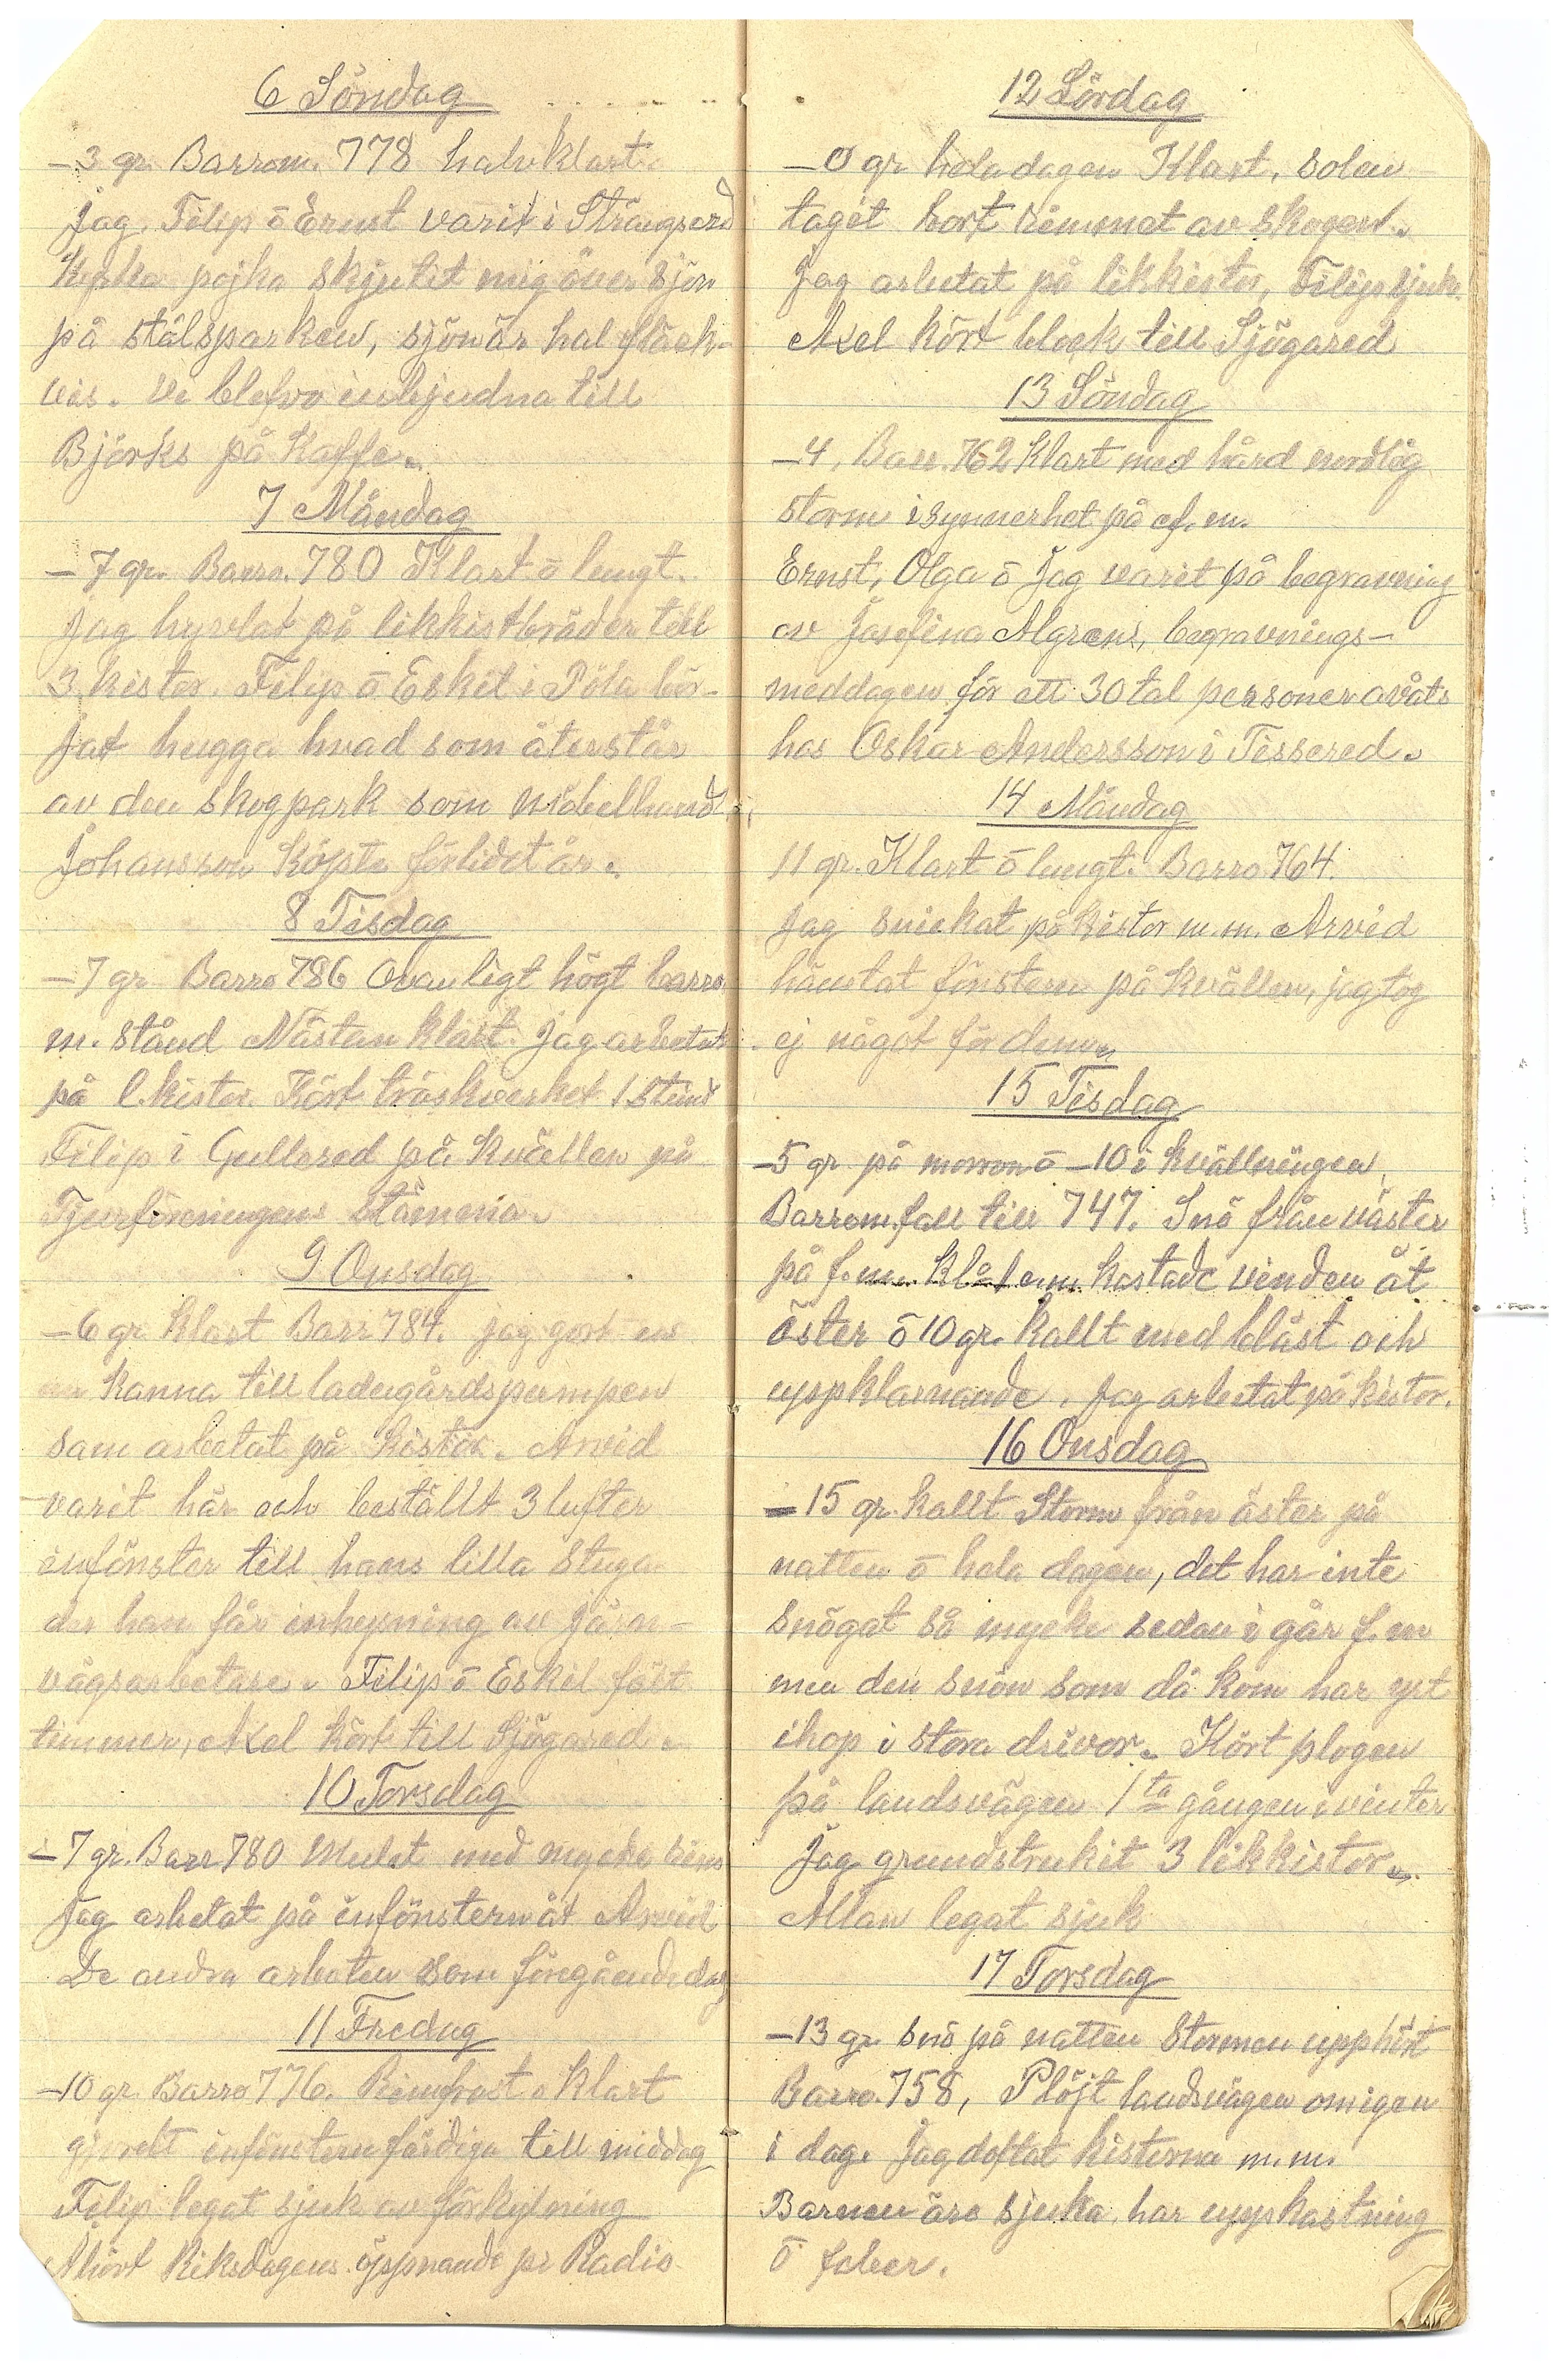 6 Söndag
-3 gr. Barrom. 778 halvklart.
Jag, Filip ō Ernst varit i Strängsered
Kyrka pojka skjutit mig över sjön
på stålsparken, sjön är hal fläck-
vis. Vi blefvo inbjudna till
Björks på Kaffe.
7 Måndag
-7 gr. Barro. 780 Klart ō lungt.
Jag hyvlat på likkistbräder till
3 kistor. Filip ō Eskil i Påla bör-
jat hugga hvad som återstår
av den skogpark som Möbelhand.
Johansson köpte förlidet år.
8 Tisdag
-7 gr Barro 786 Ovanligt högt barro.
m. stånd Nästan klart. Jag arbetat
på l.kistor. Kört tröskverket 1 stund
Filip i Gullered på kvällen på
Tjurföreningens stämma.
9 Onsdag
-6 gr klart Barr 784. Jag gjort en
ny kanna till ladugårdspumpen
sam arbetat på kistor. Arvid
varit här och beställt 3 lufter
infönster till hans lilla stuga
der han får inhysning av järn-
vägsarbetare. Filip ō Eskil fält
timmer, Axel kört till Sjögared.
10 Torsdag
-7 gr. Barr 780 Mulet med mycke rims
Jag arbetat på infönstern åt Arvid
De andra arbeten som föregående dag
11 Fredag
-10 gr. Barro 776. Rimfrost o klart
gjordt infönstern färdiga till middag
Filip legat sjuk av förkylning
Ahört Riksdagens öppnande pr Radio
12 Lördag
-0 gr hela dagen Klart, solen
taget bort rimmet av skogen.
Jag arbetat på likkistor, Filip sjuk.
Axel kört block till Sjögared
13 Söndag
-4, Barr. 762 Klart med hård nordlig
storm isynnerhet på ef.m.
Ernst, Olga ō Jag varit på begravning
av Josefina Algrens, begravnings-
meddagen för ett 30 tal personer avåts
hos Oskar Andersson i Tissered.
14 Måndag
11 gr. Klart ō lungt. Barro 764.
Jag snickat på kistor m.m. Arvid
hämtat fönstern på kvällen, jag tog
ej något för dem.
15 Tisdag
-5 gr på morron ō -10 i kvällningen,
Barrom. fall till 747. Snö från väster
på f.m. Kl 1 e.m. kastade vinden åt
öster ō 10 gr. kallt med blåst och
uppklarnande. Jag arbetat på kistor.
16 Onsdag
-15 gr. kallt Storm från öster på
natten ō hela dagen, det har inte
snögat så mycke sedan i går f.m
men den snön som då kom har yrt
ihop i stora drivor. Kört plogen
på landsvägen 1ta gången i vinter
Jag grundstrukit 3 likkistor.
Allan legat sjuk
17 Torsdag
-13 gr snö på natten Stormen upphört
Barro. 758, Plöjt landsvägen omigen
i dag. Jag doftat kistorna m.m.
Barnen äro sjuka, har uppkastning
ō feber.